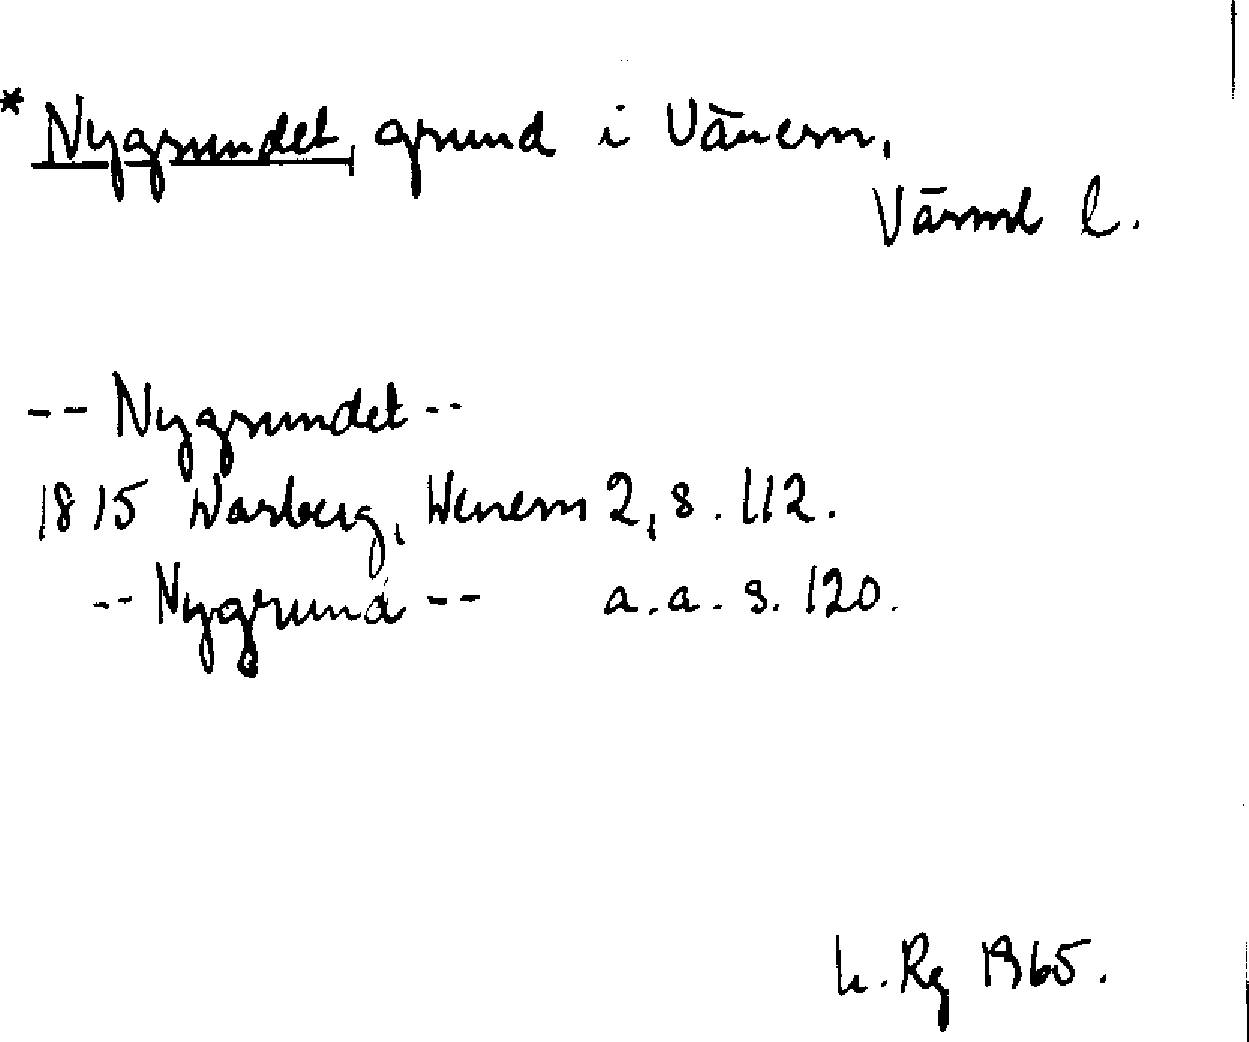 * Nygrundet, grund i Vänern,
Värml l.
-- Nygrundet --
1815 Warberg, Wenern 2, s. 112.
-- Nygrund -- a.a. s. 120.
Rg 1965.